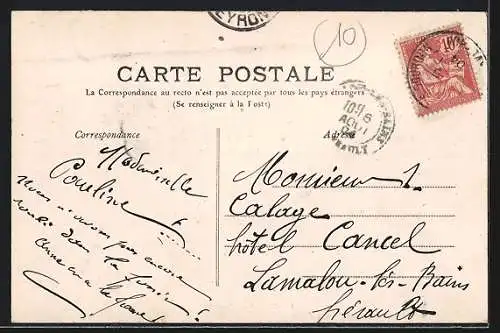 EYRON
10
CARTE POSTALE
La Correspondance au recto n'est pas acceptée par tous les pays étrangers
(Se renseigner à la Poste)
Correspondance
Adresse
10
6
AOUT
Mademoiselle
Pauline
nous n'avons pas encore
roulé dans la
Monsieur
Calage
hôtel Cancel
Lamalou-les-Bains
Hérault